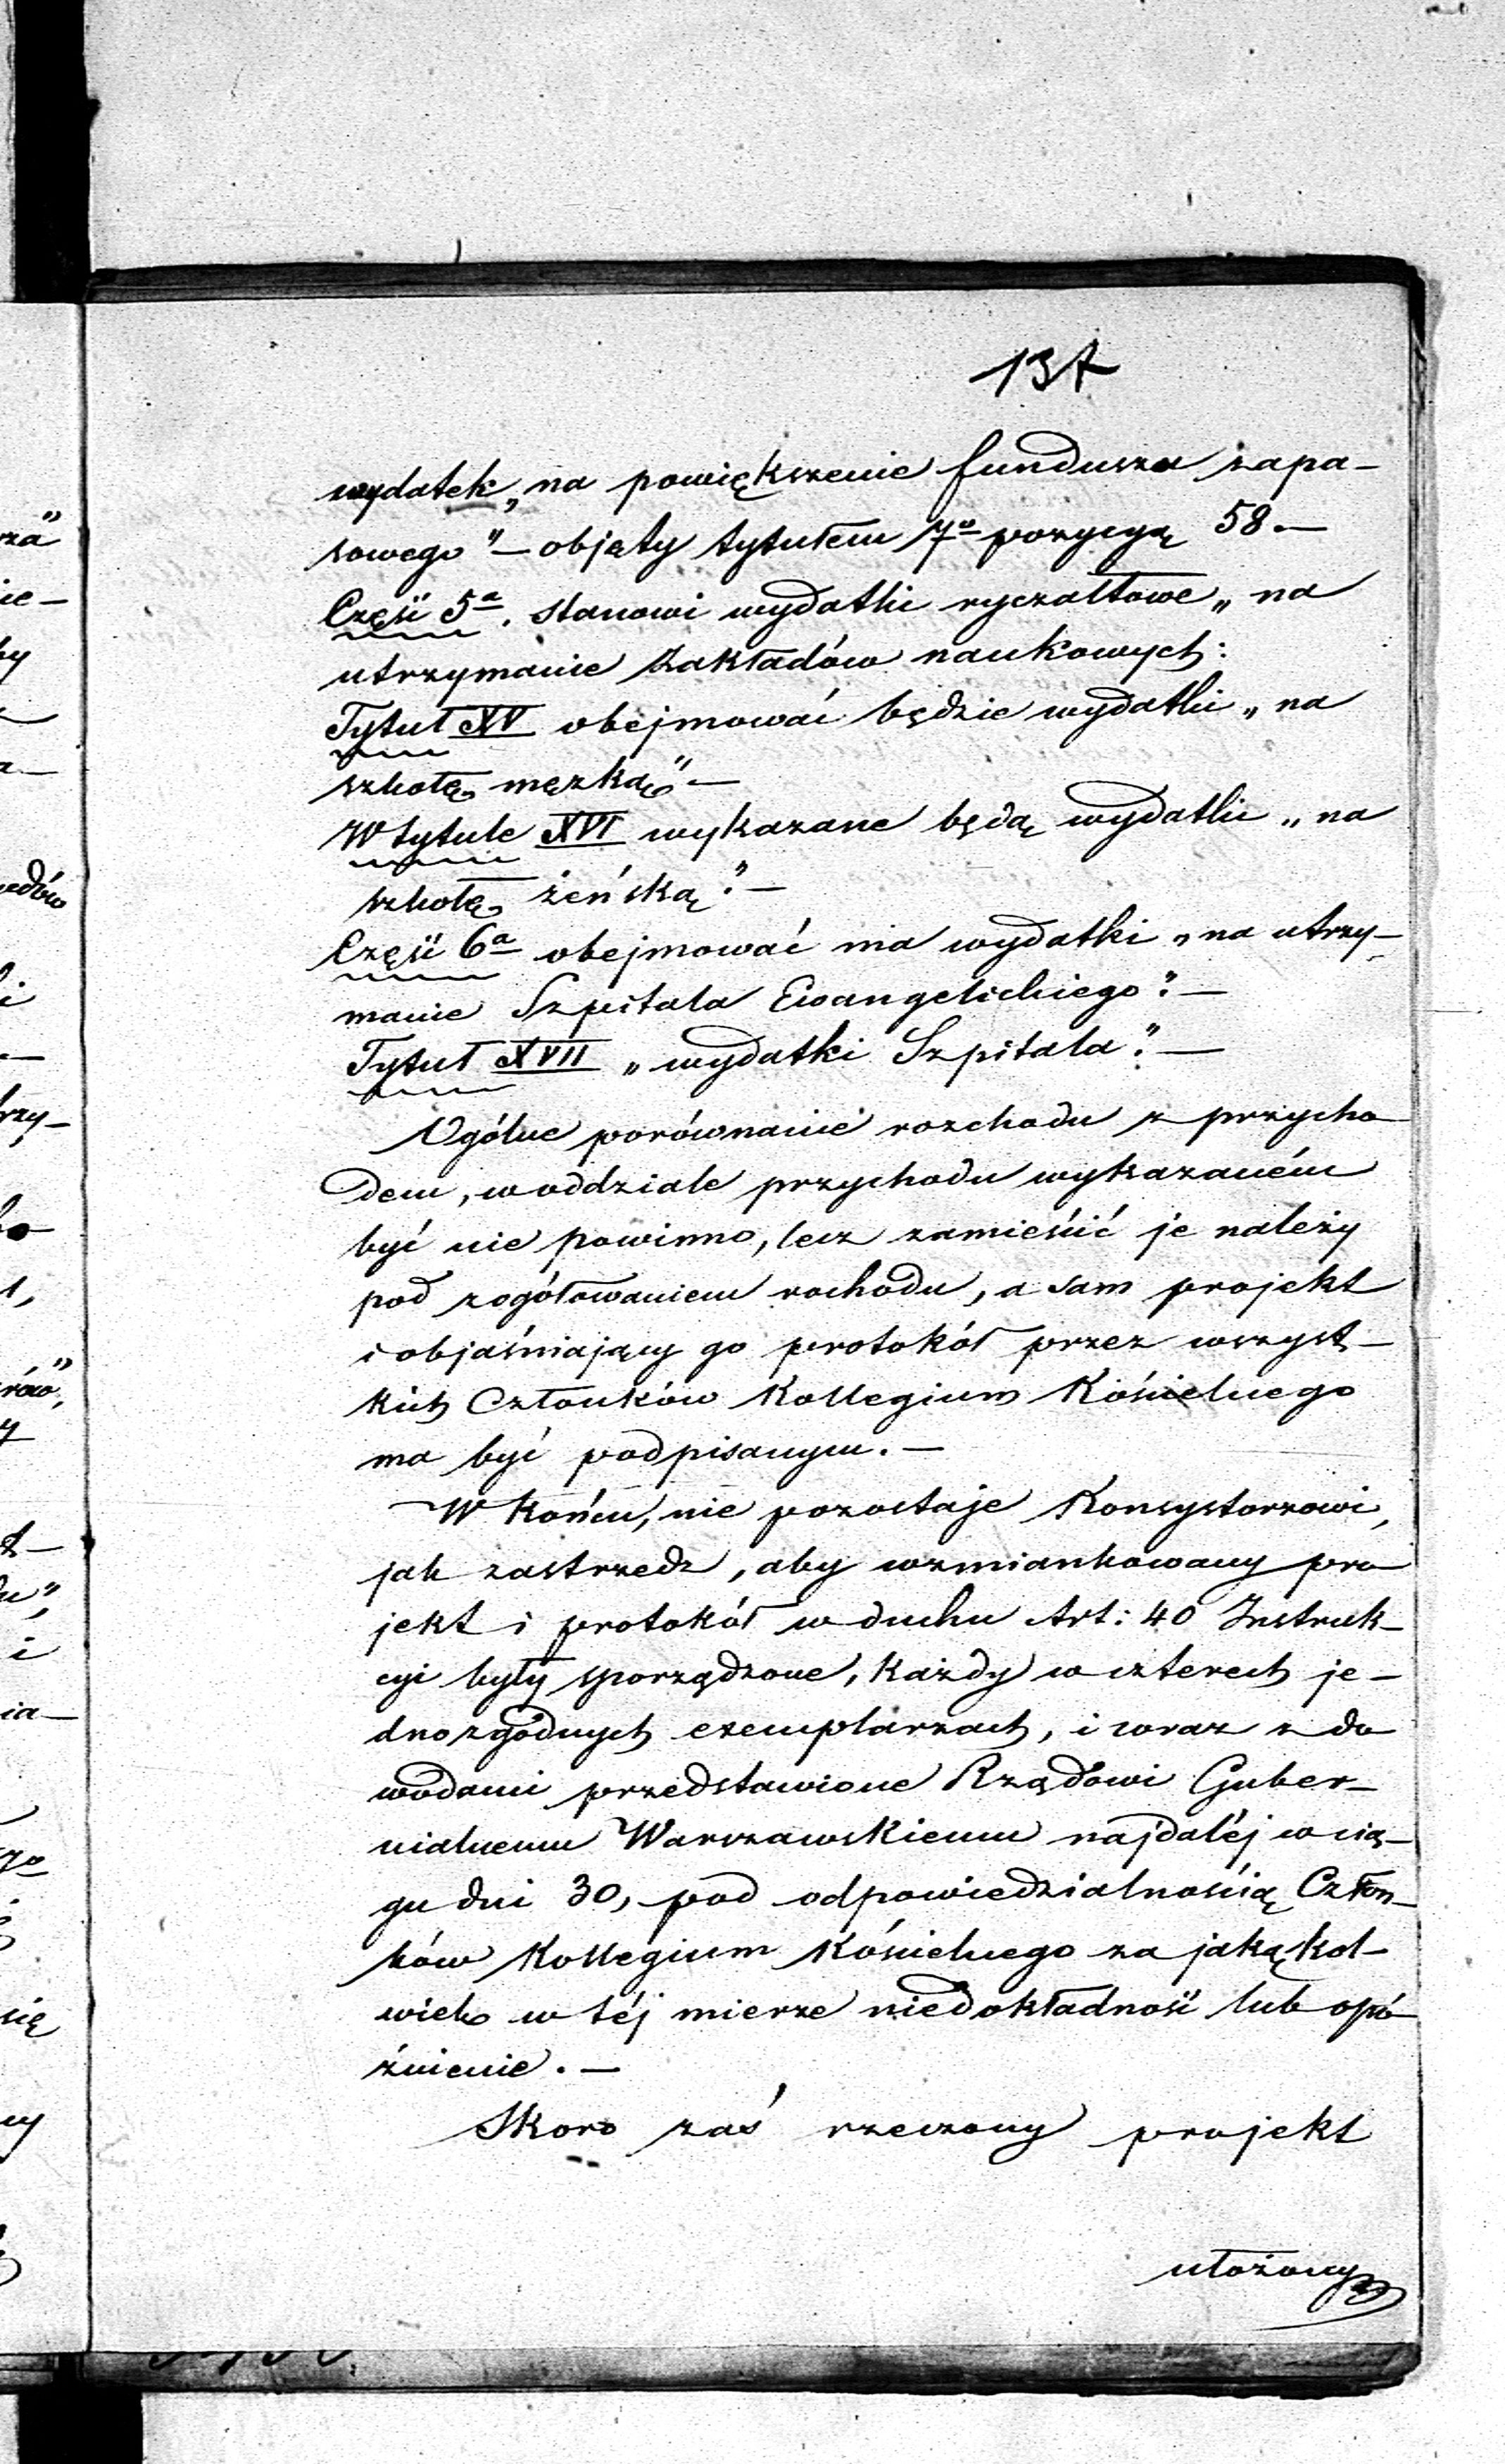 137
wydatek „na powiększenie funduszu zapa-
sowego” — objęty tytułem 7º pozycyą 58. —
Część 5ª. stanowi wydatki ryczałtowe „na
utrzymanie Zakładów naukowych:
Tytuł XV obejmować będzie wydatki „na
szkołę męzką” —
W tytule XVI wykazane będą wydatki „na
szkołę żeńską”. —
Część 6ª obejmować ma wydatki „na utrzy-
manie Szpitala Ewangelickiego”. —
Tytuł XVII „wydatki Szpitala”. —
Ogólne porównanie rozchodu z przycho
dem, w oddziale przychodu wykazaném
być nie powinno, lecz zamieścić je należy
pod zogółowaniem rochodu, a sam projekt
i objaśniający go protokół przez wszyst-
kich Członków Kollegium Kościelnego
ma być podpisanym. —
W końcu, nie pozostaje Konsystorzowi,
jak zastrzedz, aby wzmiankowany pro
jekt i protokół w duchu Art: 40 Instruk-
cyi były sporządzone, każdy w czterech je-
dnozgodnych exemplarzach, i wraz z do
wodami przedstawione Rządowi Guber-
nialnemu Warszawskiemu najdaléj w cią-
gu dni 30, pod odpowiedzialnością Człon-
ków Kollegium Kościelnego za jakąkol-
wiek w téj mierze niedokładność lub opó
źnienie. —
Skoro zaś rzeczony projekt
ułożony